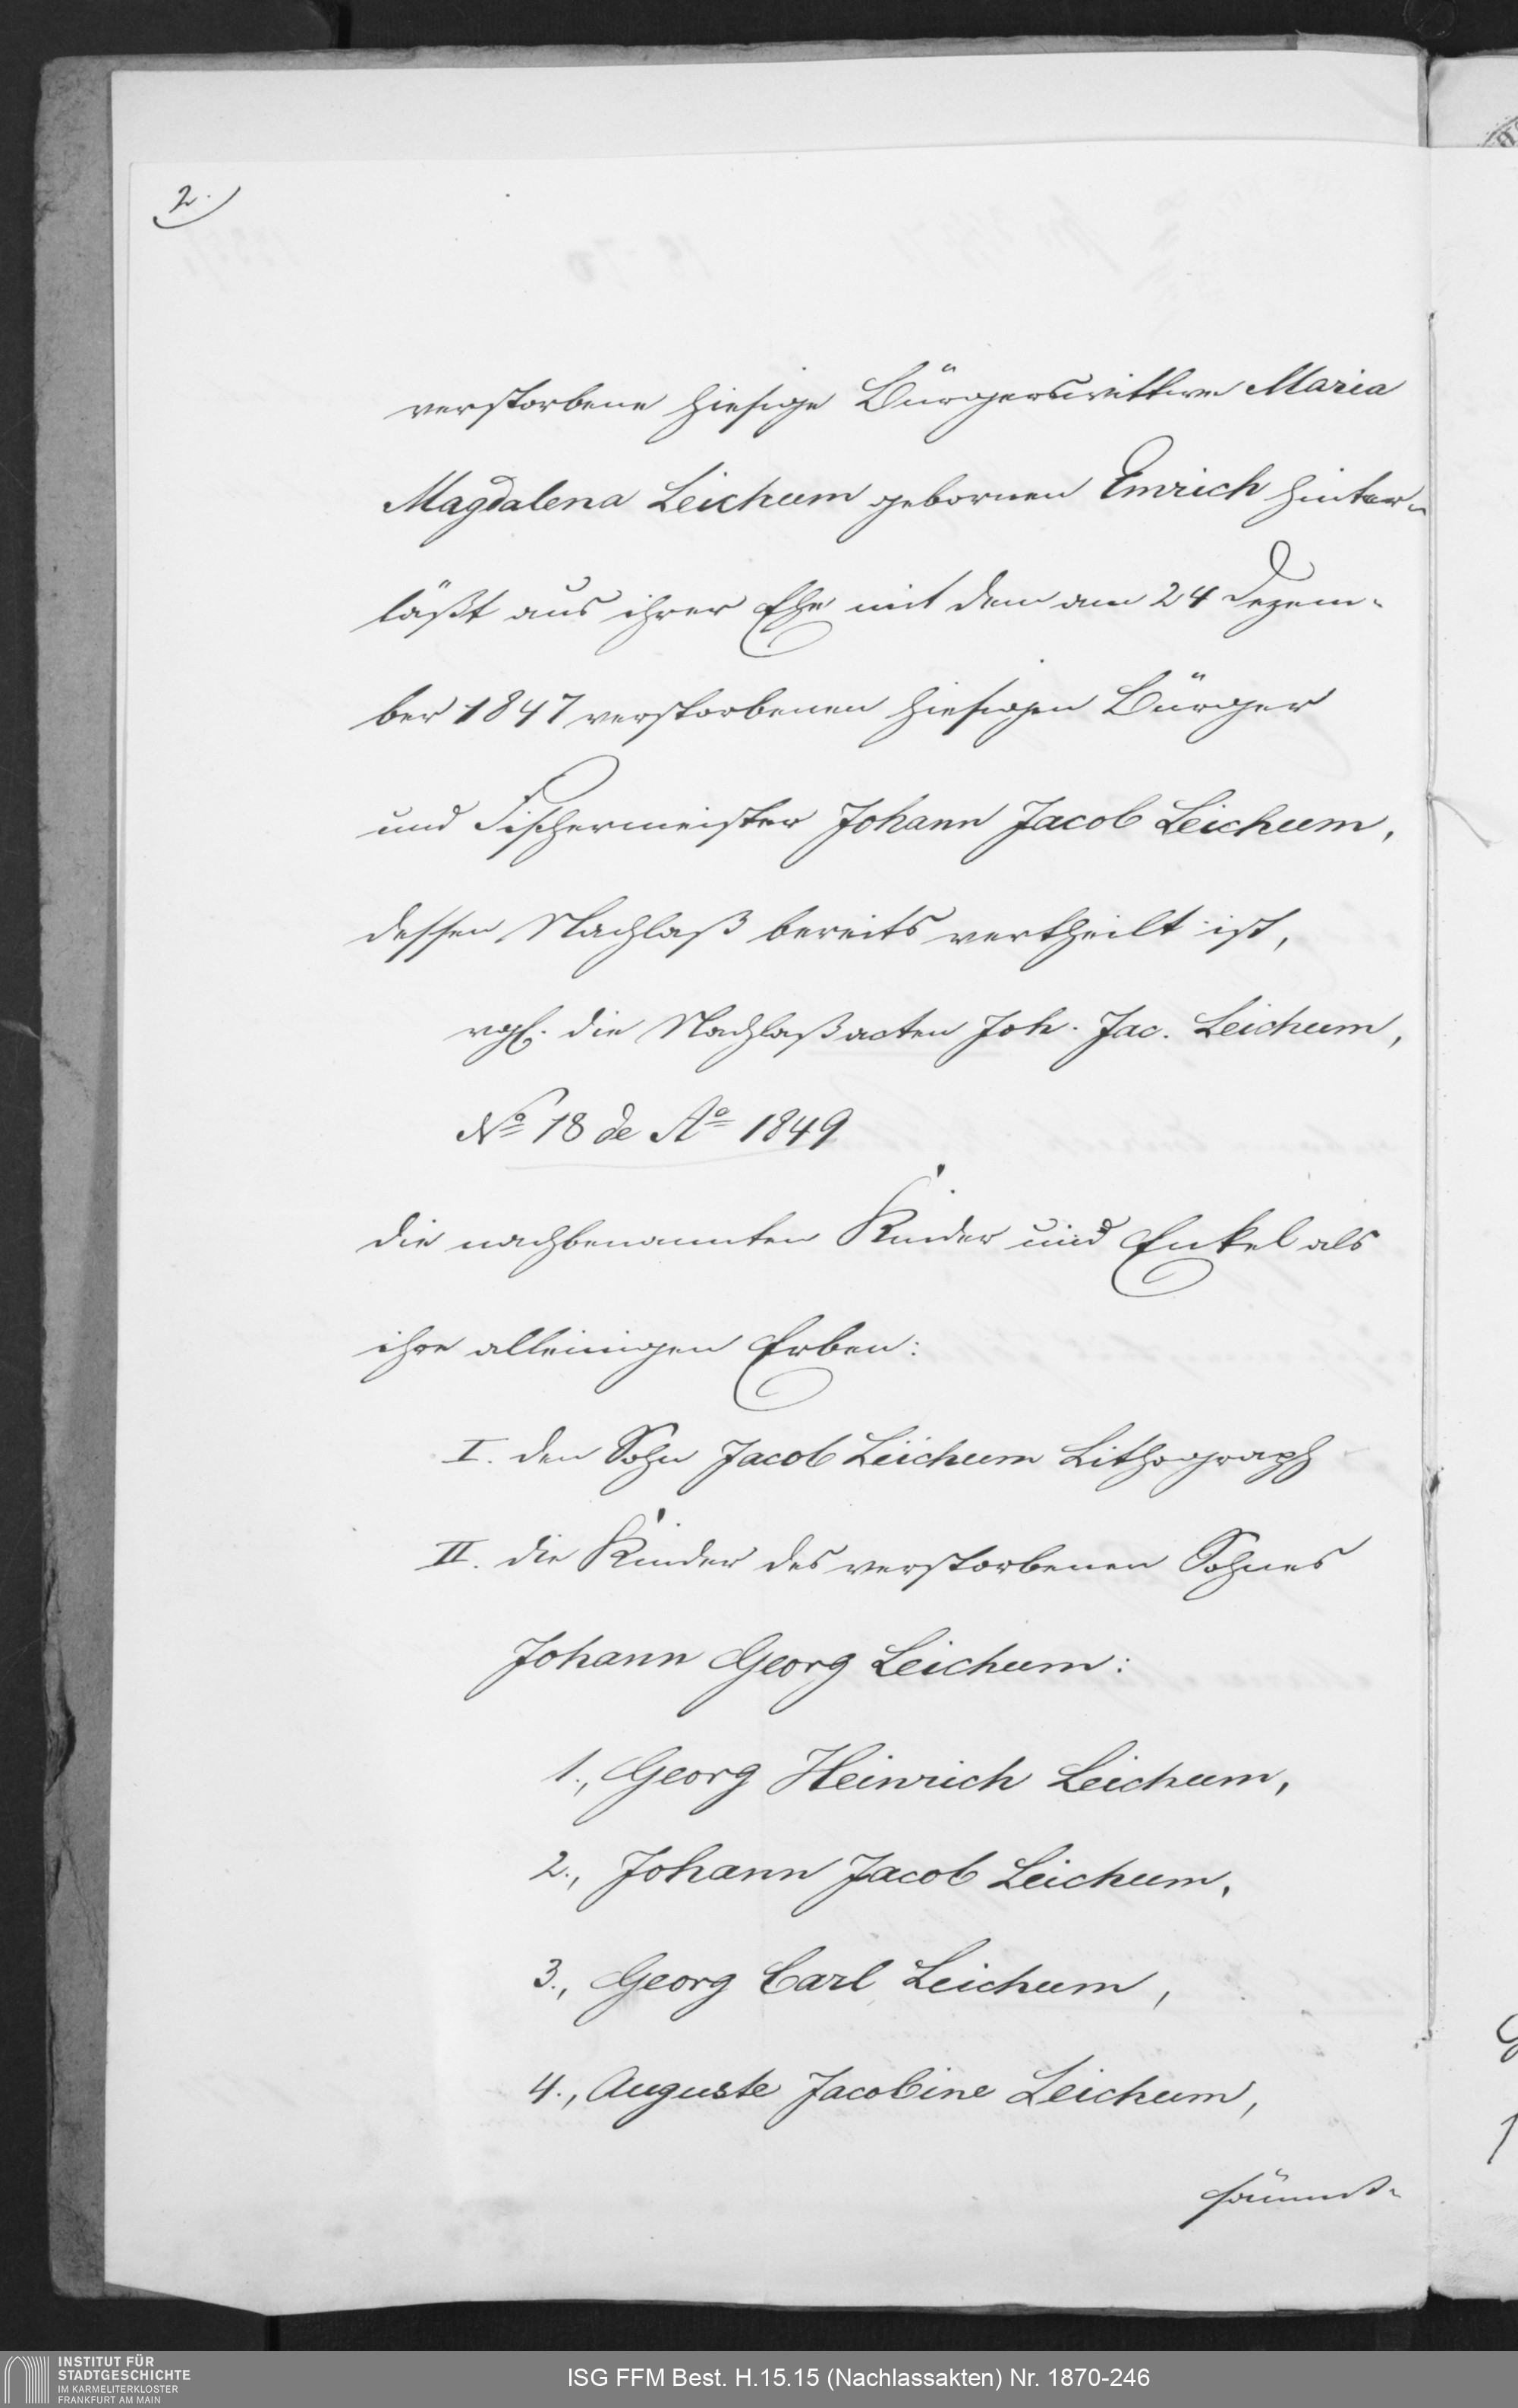 2.
verstorbene hiesige Bürgerswittwe Maria
Magdalena Leichum gebornen Emrich hinter-
läßt aus ihrer Ehe mit dem am 24 Dezem-
ber 1847 verstorbenen hiesigen Bürger
und Fischermeister Johann Jacob Leichum,
dessen Nachlaß bereits vertheilt ist,
vgl. die Nachlaßacten Joh. Jac. Leichum,
No 18 de Ao 1849
die nachbenannten Kinder und Enkel als
ihre alleinigen Erben:
I. den Sohn Jacob Leichum Lithograph
II. die Kinder des verstorbenen Sohnes
Johann Georg Leichum:
1., Georg Heinrich Leichum,
2., Johann Jacob Leichum,
3., Georg Carl Leichum,
4., Auguste Jacobine Leichum,
sämmt-
INSTITUT FÜR
STADTGESCHICHTE
IM KARMELITERKLOSTER
FRANKFURT AM MAIN
ISG FFM Best. H.15.15 (Nachlassakten) Nr. 1870-246